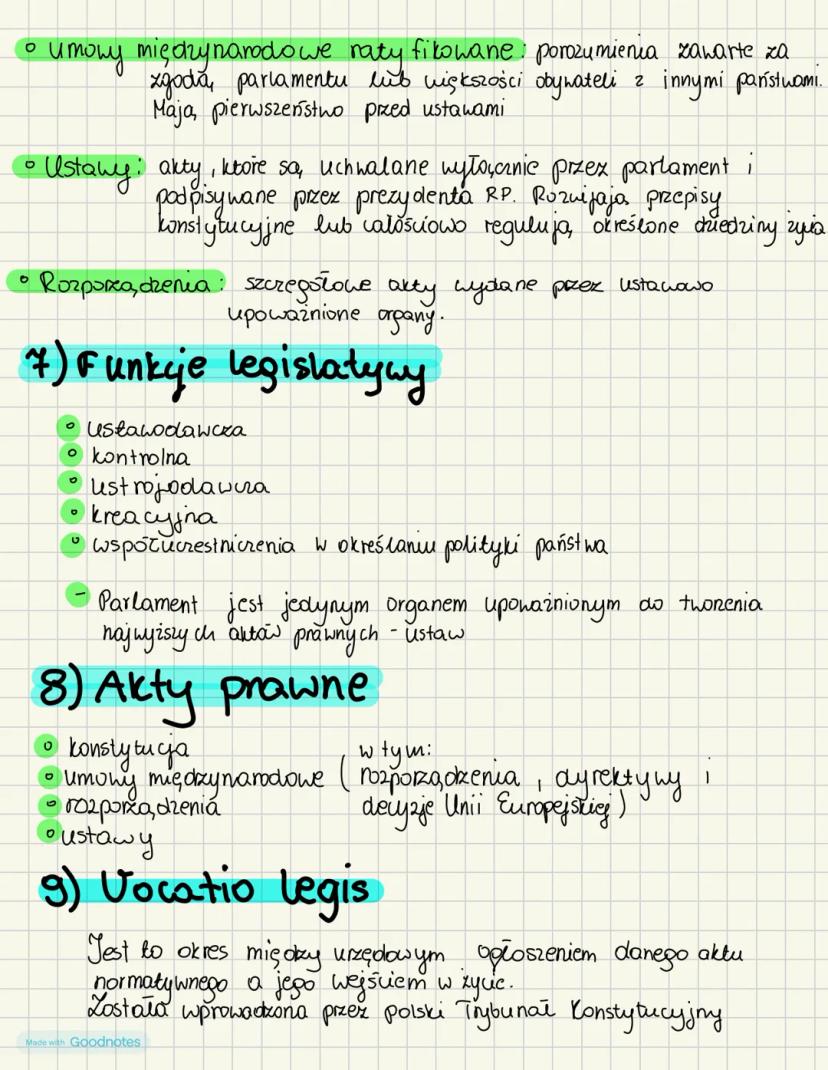 umowy międzynarodowe ratyfikowane: porozumienia zawarte za
zgodą parlamentu lub większości obywateli z innymi państwami.
Mają pierwszeństwo przed ustawami
Ustawy: akty, które są uchwalane wyłącznie przez parlament i
podpisywane przez prezydenta RP. Rozwijają przepisy
konstytucyjne lub całościowo regulują określone dziedziny życia
Rozporządzenia: szczegółowe akty wydane przez ustawowo
upoważnione organy.
7) Funkcje legislatywy
ustawodawcza
kontrolna
ustrojodawcza
kreacyjna
współuczestniczenia w określaniu polityki państwa
- Parlament jest jedynym organem upoważnionym do tworzenia
najwyższych aktów prawnych - ustaw
8) Akty prawne
konstytucja w tym:
umowy międzynarodowe (rozporządzenia, dyrektywy i
rozporządzenia decyzje Unii Europejskiej)
ustawy
9) Vocatio legis
Jest to okres między urzędowym ogłoszeniem danego aktu
normatywnego a jego wejściem w życie.
Została wprowadzona przez polski Trybunał Konstytucyjny
Made with Goodnotes